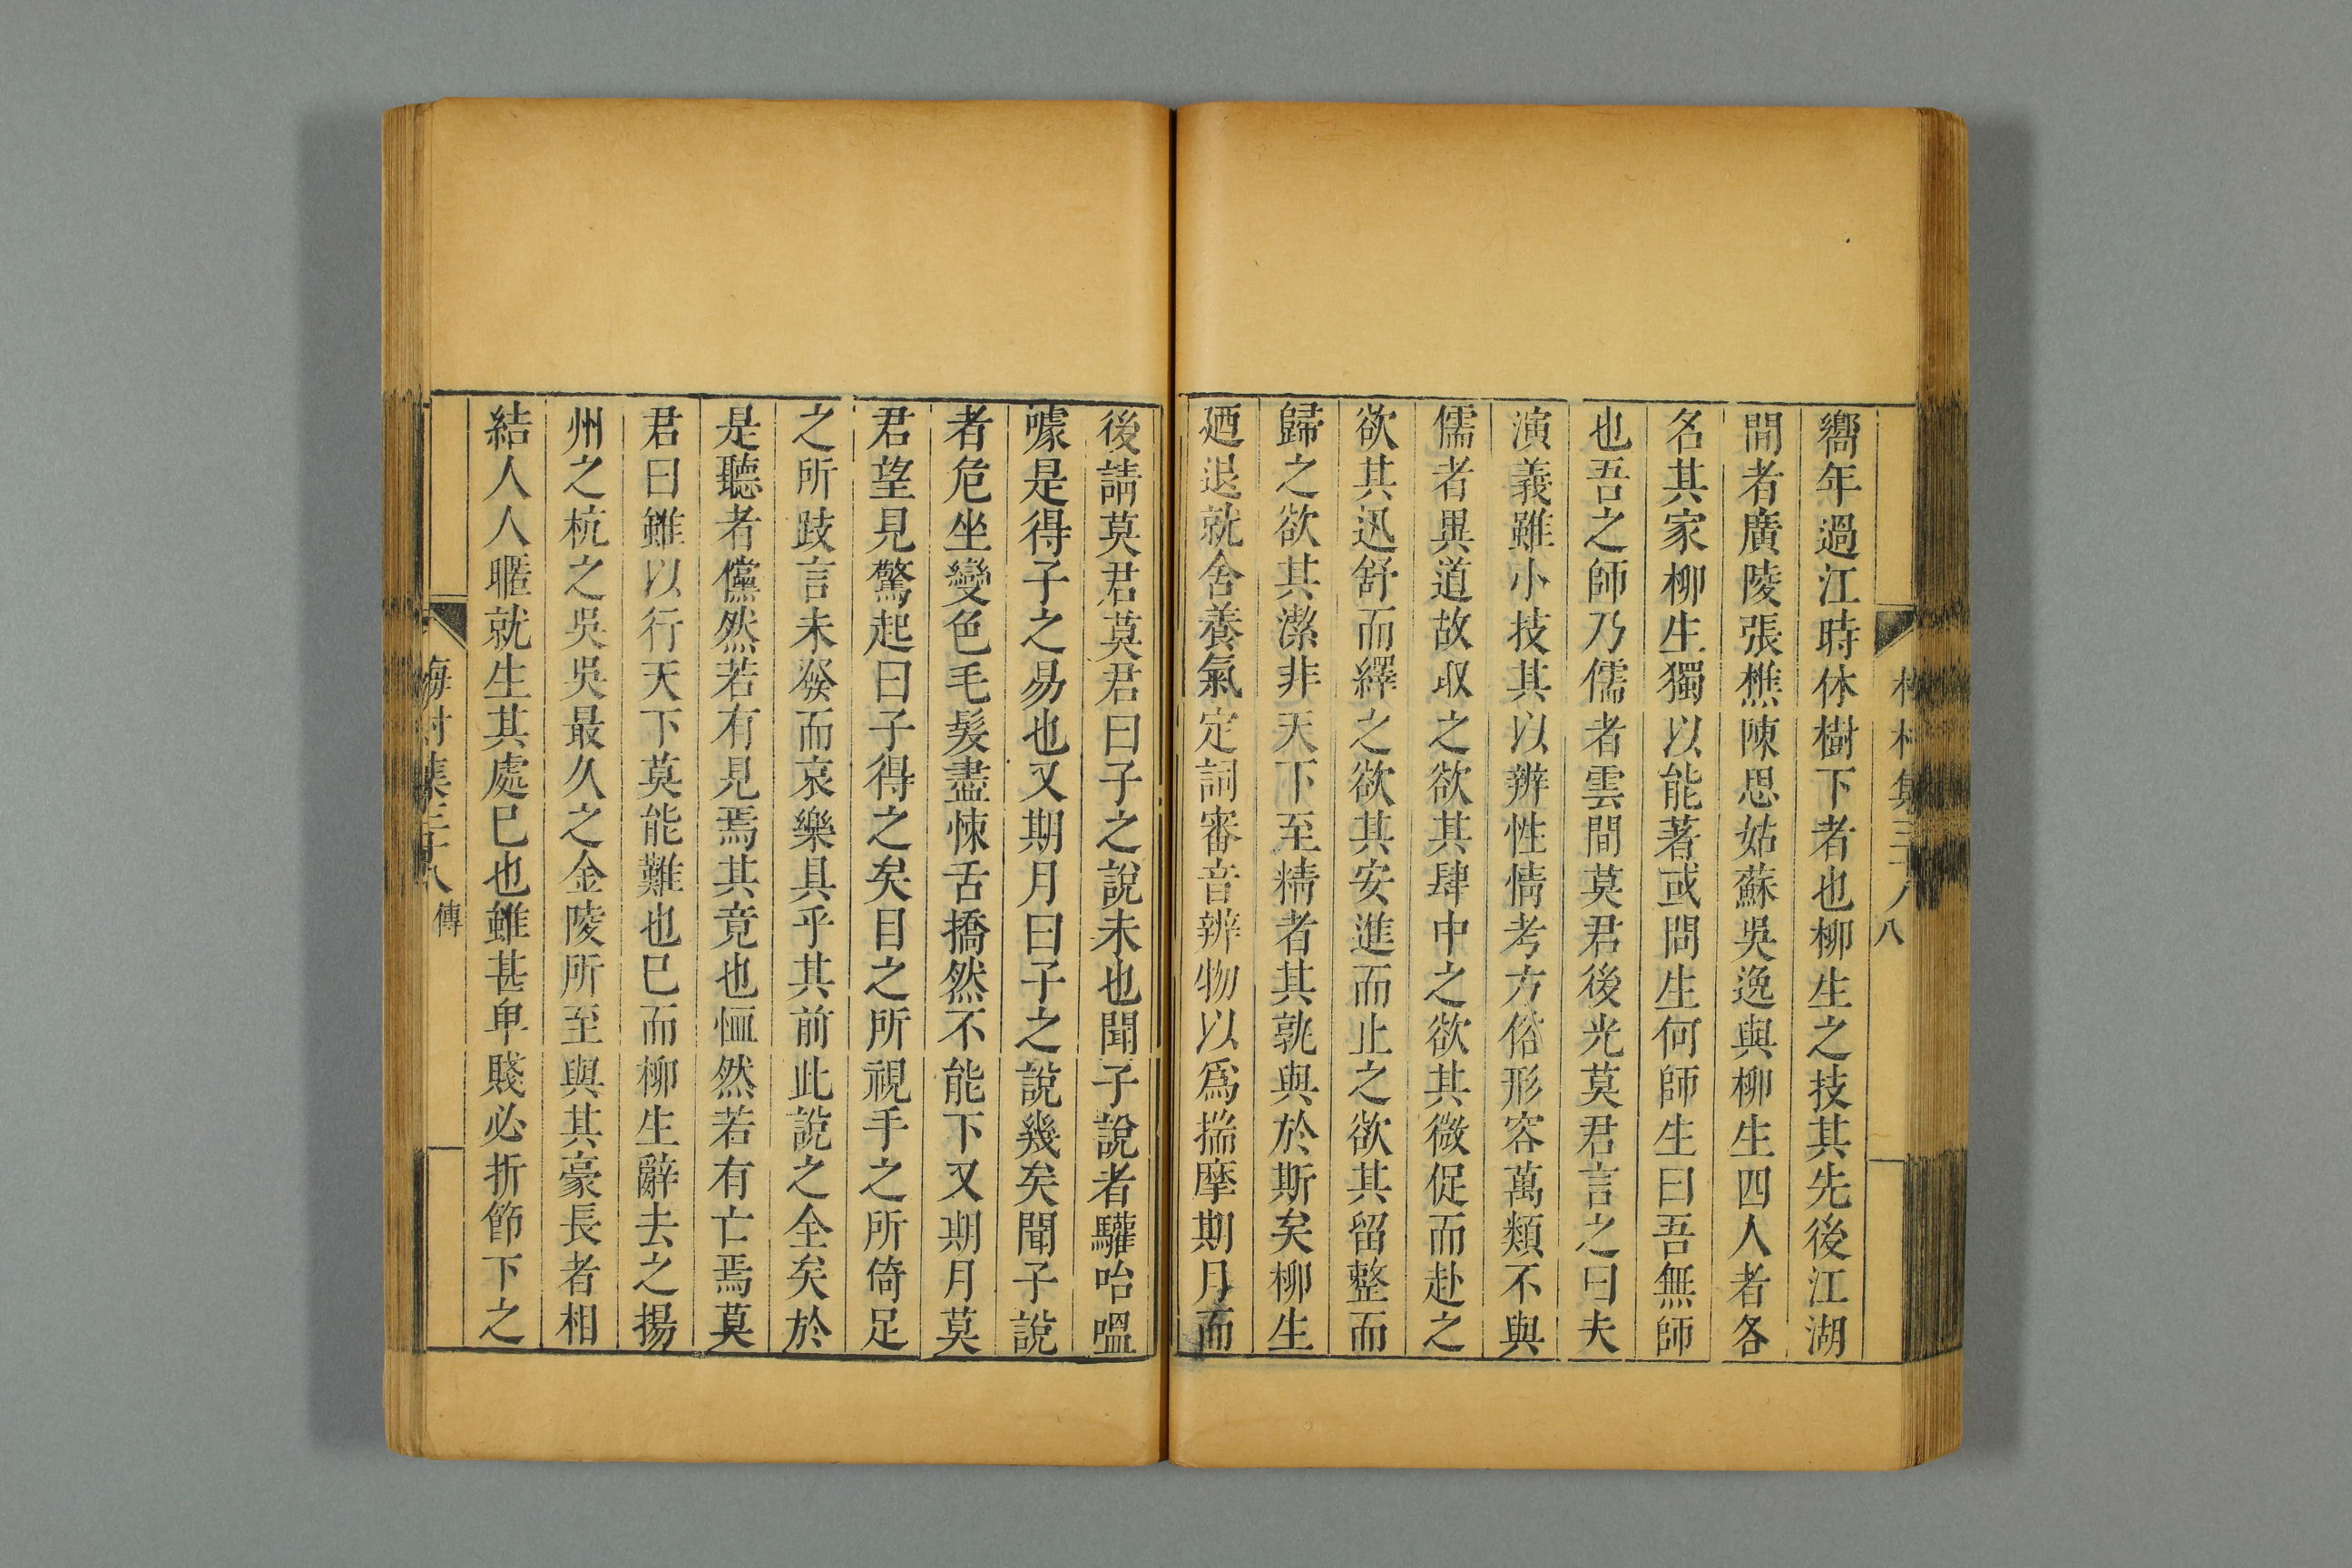 嚮年過江時休樹下者也柳生之技其先後江湖
間者廣陵張樵陳思姑蘇吳逸與柳生四人者各
名其家柳生獨以能著或問生何師生曰吾無師
也吾之師乃儒者雲間莫君後光莫君言之曰夫
演義雖小技其以辨性情考方俗形容萬類不與
儒者異道故取之欲其肆中之欲其微促而赴之
欲其迅舒而繹之欲其安進而止之欲其留整而
歸之欲其潔非天下至精者其孰與於斯矣柳生
廼退就舍養氣定詞審音辨物以爲揣摩期月而
後請莫君莫君曰子之說未也聞子說者驩咍嗢
噱是得子之易也又期月曰子之說幾矣聞子說
者危坐變色毛髮盡悚舌撟然不能下又期月莫
君望見驚起曰子得之矣目之所視手之所倚足
之所跂言未發而哀樂具乎其前此說之全矣於
是聽者儻然若有見焉其竟也恤然若有亡焉莫
君曰雖以行天下莫能難也已而柳生辭去之揚
州之杭之吳吳最久之金陵所至與其豪長者相
結人人暱就生其處已也雖甚卑賤必折節下之
梅村集三十八 傳
八